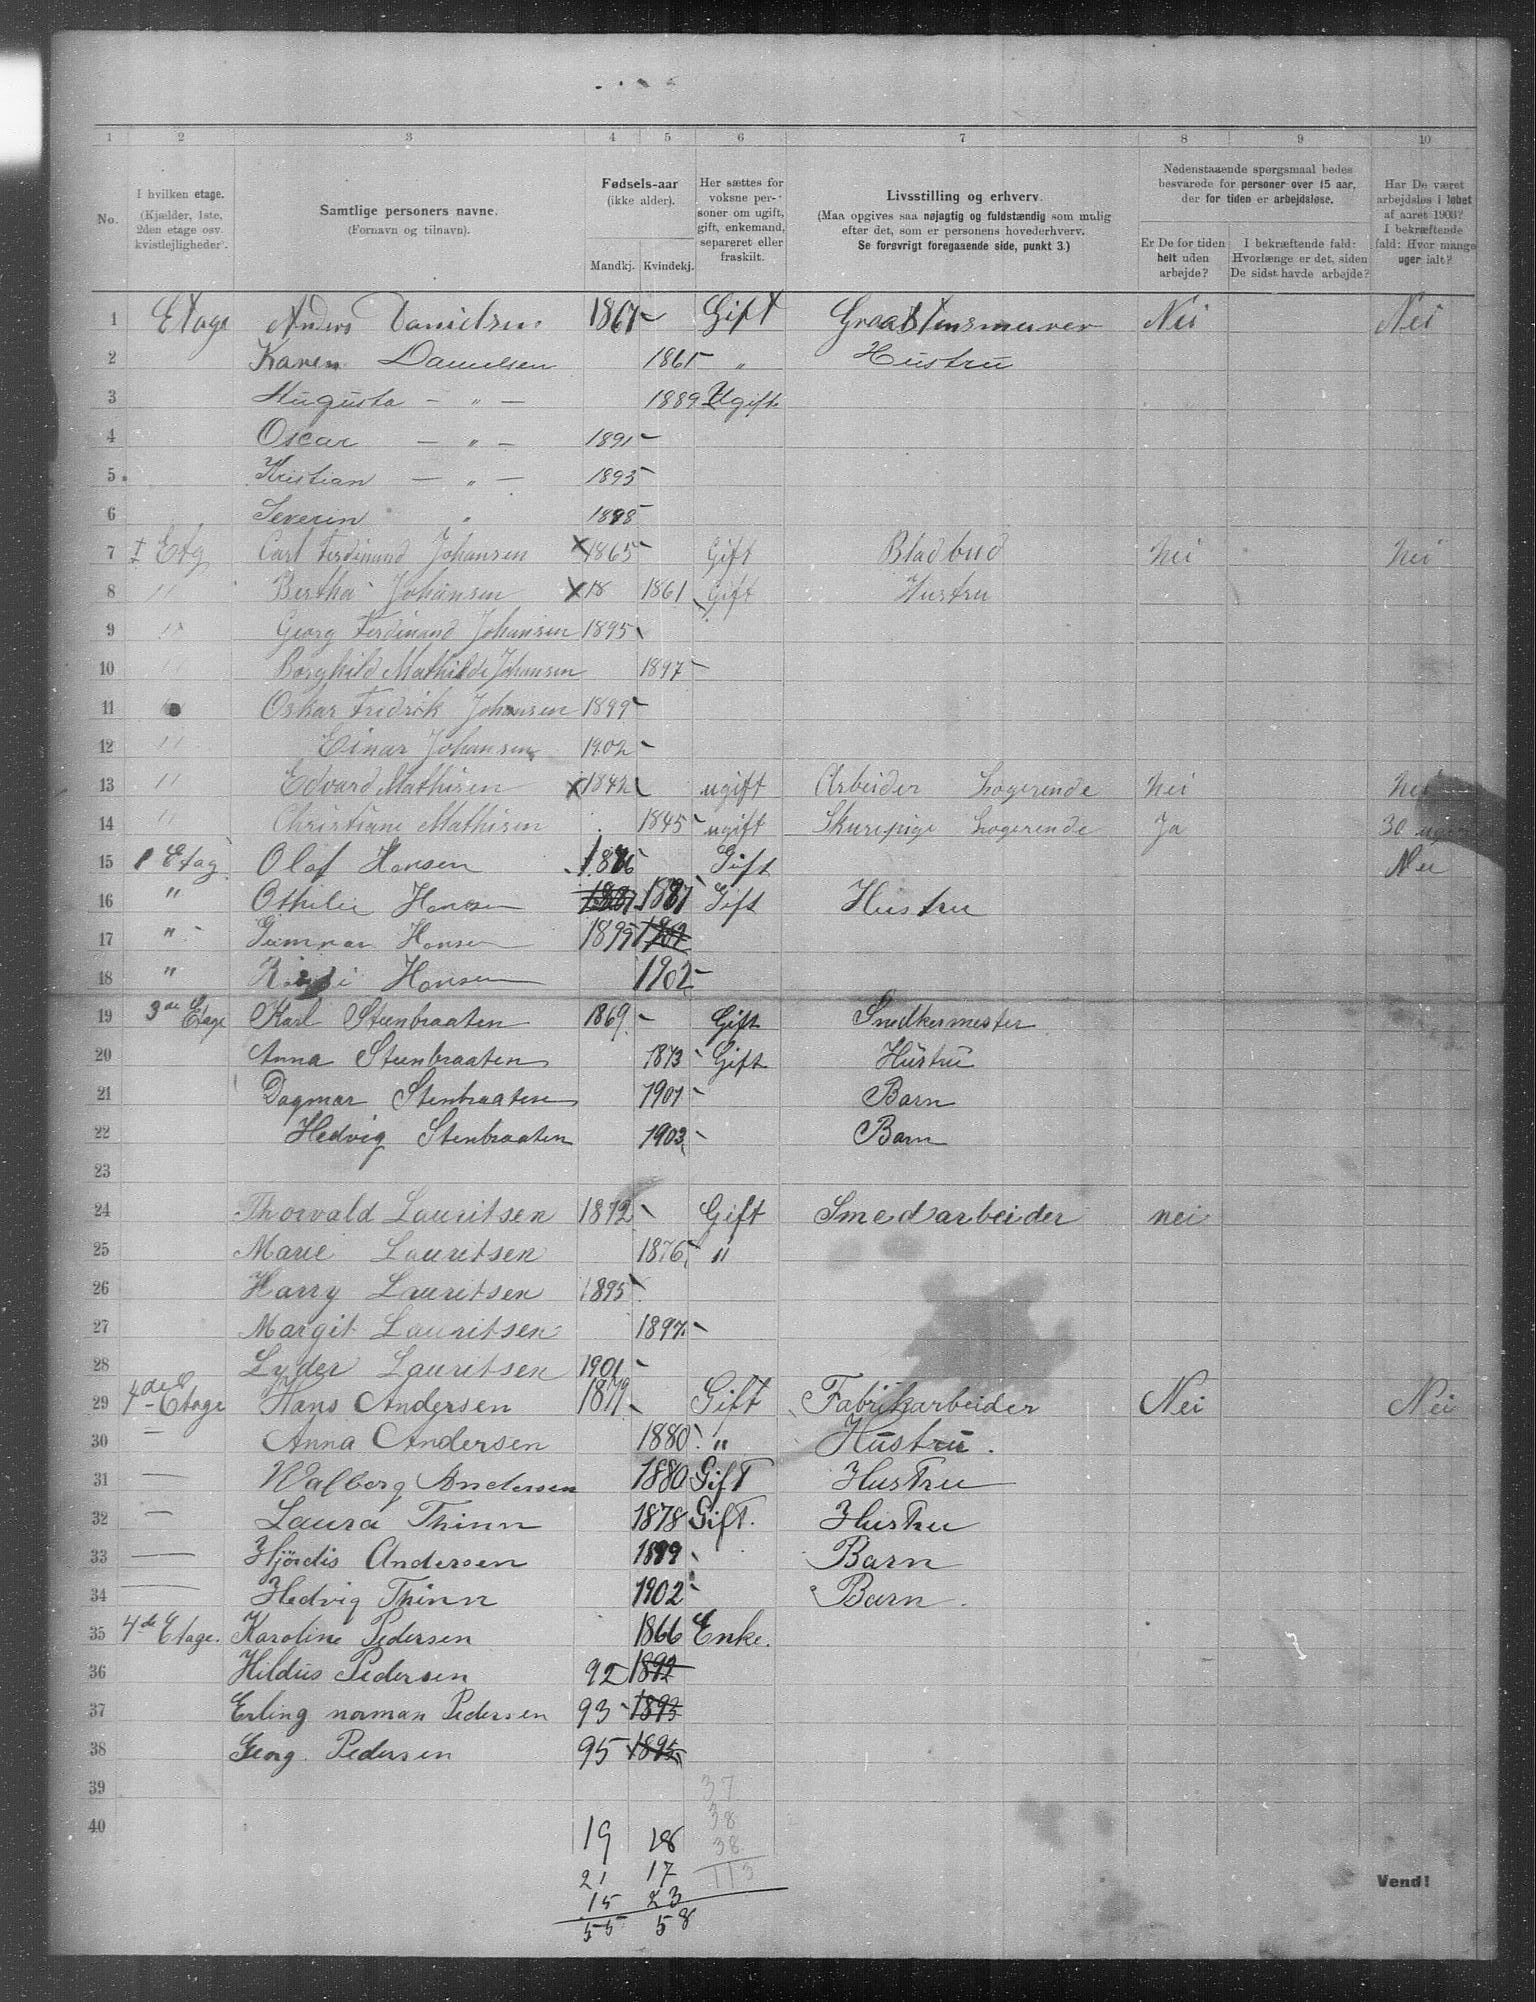 1 2 3 4 5 6 7 8 9 10
No.
I hvilken etage. (Kjælder, 1ste, 2den etage osv. kvistlejligheder).
Samtlige personers navne. (Fornavn og tilnavn).
Fødsels-aar (ikke alder).
Mandkj. Kvindekj.
Her sættes for voksne personer om ugift, gift, enkemand, separeret eller fraskilt.
Livsstilling og erhverv. (Maa opgives saa nøjagtig og fuldstændig som mulig efter det, som er personens hovederhverv. Se forøvrigt foregaaende side, punkt 3.)
Nedenstaaende spørgsmaal bedes besvarede for personer over 15 aar, der for tiden er arbejdsløse.
Er De for tiden helt uden arbejde?
I bekræftende fald: Hvorlænge er det, siden De sidst havde arbejde?
Har De været arbejdsløs i løbet af aaret 1903? I bekræftende fald: Hvor mange uger ialt?
1 Etage Anders Danielsen 1867 - Gift Graastensmurer Nei Nei
2 Karen Danielsen 1865 " Hustru
3 Augusta - " - 1889 Ugift
4 Oscar - " - 1891 -
5 Kristian - " - 1893 -
6 Severin " 1898 -
7 I Etg Carl Ferdinand Johansen X 1865 - Gift Bladbud Nei Nei
8 " Bertha Johansen X 18 1861 Gift Hustru
9 " Georg Ferdinand Johansen 1895
10 " Borghild Mathilde Johansen 1897 -
11 Oskar Fredrik Johansen 1899 -
12 " Einar Johansen 1902 -
13 " Edvard Mathisen X 1842 ugift Arbeider Logerende Nei Nei
14 " Christiane Mathisen 1845 ugift Skurepige Logerende Ja 30 uger
15 1 Etag. Olaf Hansen 1876 Gift Nei
16 " Othilie Hansen 1881 Gift Hustru
17 " Gunnar Hansen 1899 1902
18 " Hansen 1902 -
19 3de Etage Karl Steenbraaten 1869 - Gift Snedkermester
20 Anna Steenbraaten 1873 - Gift Hustru
21 Dagmar Stenbraaten 1901 - Barn
22 Hedvig Stenbraaten 1903 - Barn
23
24 Thorvald Lauritsen 1872 - Gift Smedarbeider nei
25 Marie Lauritsen 1876 "
26 Harry Lauritsen 1895
27 Margit Lauritsen 1897 -
28 Lyder Lauritsen 1901 -
29 4de Etage Hans Andersen 1879 - Gift Fabrikarbeider Nei Nei
30 - Anna Andersen 1880 " Hustru.
31 - Walborg Andersen 1880 Gift Hustru
32 - Laura Thinn 1878 Gift. Hustru
33 - Hjördis Andersen 1899 Barn
34 - Hedvig Thinn 1902 - Barn.
35 4de Etage. Karoline Pedersen 1866 Enke.
36 Hildus Pedersen 92 1892
37 Erling norman Pedersen 93 - 1893
38 Georg. Pedersen 95 1895
39 37
40 38
19 18 38
21 17 113
15 23
55 58
Vend!